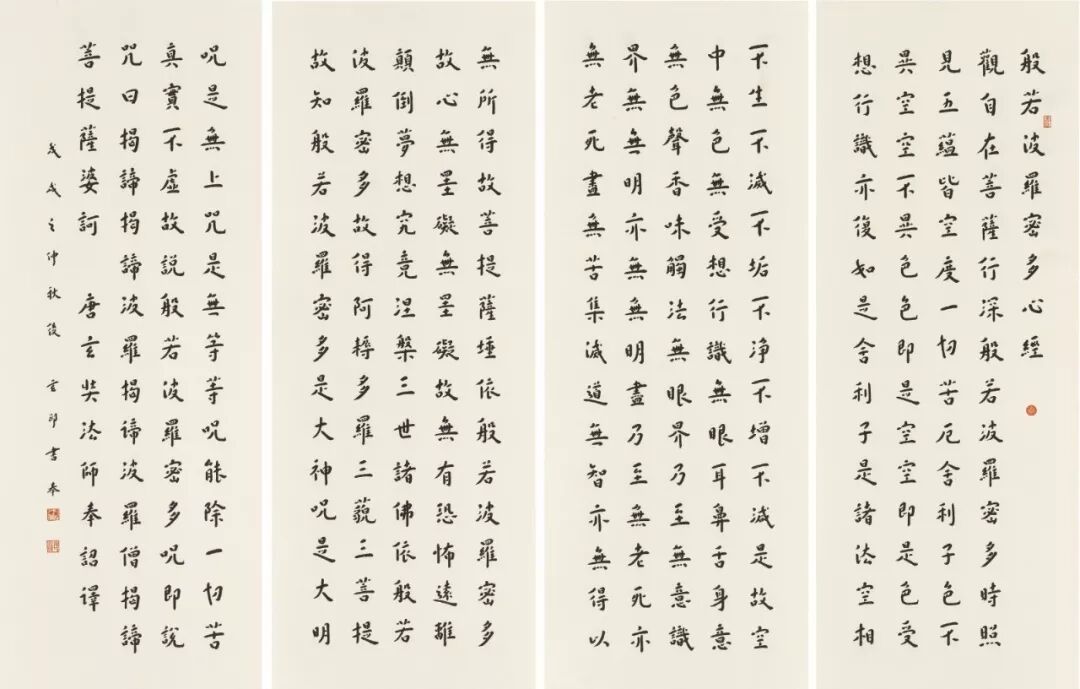 般若波羅密多心經
觀自在菩薩行深般若波羅密多時照
見五蘊皆空度一切苦厄舍利子色不
異空空不異色色即是空空即是色受
想行識亦復如是舍利子是諸法空相
不生不滅不垢不净不增不減是故空
中無色無受想行識無眼耳鼻舌身意
無色聲香味觸法無眼界乃至無意識
界無無明亦無無明盡乃至無老死亦
無老死盡無苦集滅道無智亦無得以
無所得故菩提薩埵依般若波羅密多
故心無罣礙無罣礙故無有恐怖遠離
顛倒夢想究竟涅槃三世諸佛依般若
波羅密多故得阿耨多羅三藐三菩提
故知般若波羅密多是大神呪是大明
呪是無上咒是無等等呪能除一切苦
真實不虛故說般若波羅密多呪即說
咒曰揭諦揭諦波羅揭諦波羅僧揭諦
菩提薩婆訶 唐玄奘法師奉詔譯
戊戌之仲秋後 書奉